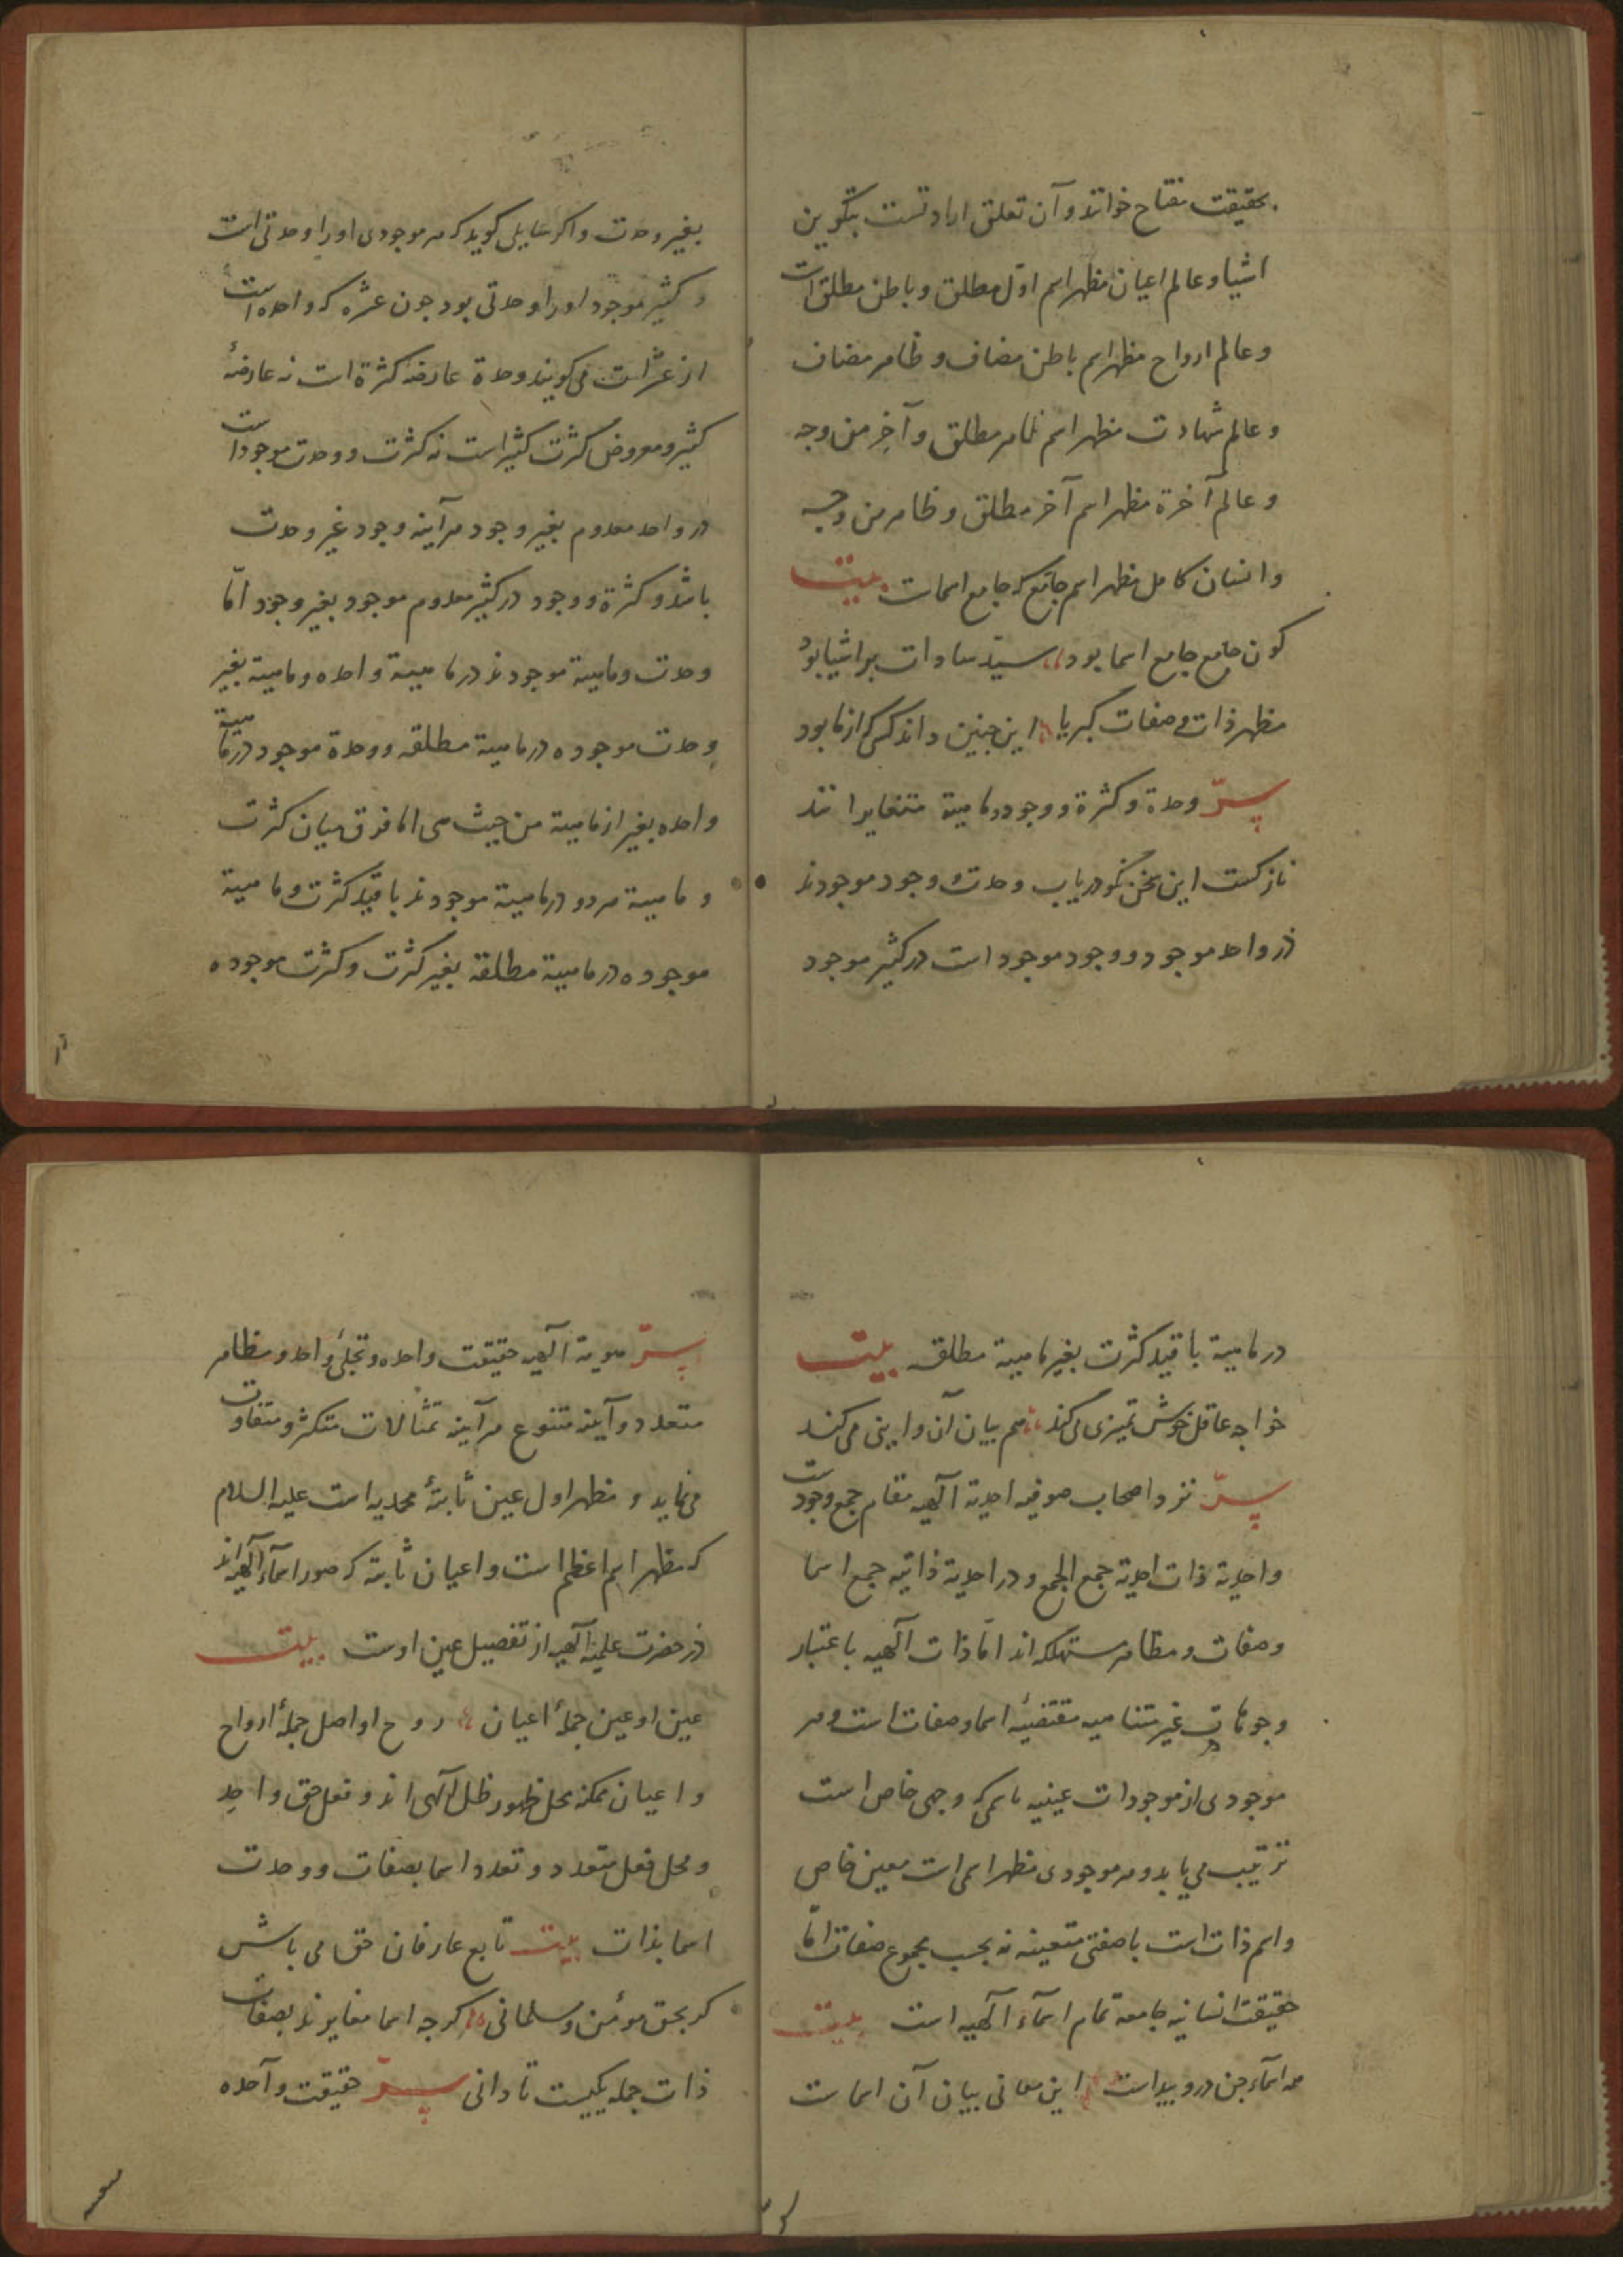 بحقیقت مفتاح خوانند و آن تعلق ارادتست بتکوین
اشیا و عالم اعیان مظهر اسم اوّل مطلق و باطن مطلق است
و عالم ارواح مظهر اسم باطن مضاف و ظاهر مضاف
و عالم شهادت مظهر اسم ظاهر مطلق و آخر من وجه
و عالم آخرة مظهر اسم آخر مطلق و ظاهر من وجه
و انسان کامل مظهر اسم جامع که جامع اسماست بیت
کون جامع جامع اسما بود سیّد سادات بر اشیا بود
مظهر ذات و صفات کبریا این چنین داند کسی کز ما بود
سرّ وحدة و کثرة و وجود و ماهیة متغایرانند
نازکست این سخن نکو دریاب وحدت و وجود موجودند
در واحد موجود و وجود موجود است در کثیر موجود
بغیر وحدت و اکر قایلی کوید که هر موجودی او را وحدتی است
و کثیر موجود او را وحدتی بود چون عشره که واحده است
از عشرات می کویند وحدة عارضه کثرة است نه عارضهٔ
کثیر و معروض کثرت کثیر است نه کثرت و وحدت موجود است
در واحد معدوم بغیر وجود هرآینه وجود غیر وحدت
باشد و کثرة و وجود در کثیر معدوم موجود بغیر وجود امّا
وحدت و ماهیة موجودند در ماهیة واحده و ماهیة بغیر
وحدت موجوده در ماهیة مطلقه و وحدة موجود در ماهیة
واحده بغیر از ماهیة من حیث هی اما فرق میان کثرت
و ماهیة هر دو در ماهیة موجودند با قید کثرت و ماهیة
موجوده در ماهیة مطلقه بغیر کثرت و کثرت موجوده
در ماهیة با قید کثرت بغیر ماهیة مطلقه بیت
خواجه عاقل خوش تمیزی می کند هم بیان آن و اینی می کند
سرّ نزد اصحاب صوفیه احدیة آلهیه مقام جمع وجودست
و احدیة ذات احدیة جمع الجمع و در احدیة ذاتیه جمع اسما
و صفات و مظاهر مستهلکه اند امّا ذات آلهیه باعتبار
وجوهات غیر متناهیه مقتضیهٔ اسما و صفات است و هر
موجودی از موجودات عینیه باسمی که وجهی خاص است
ترتیب می یابد و هر موجودی مظهر اسمی است معین خاص
و اسم ذات است با صفتی متعینه نه بحسب مجموع صفات امّا
حقیقت انسانیه جامعه تمام اسمآء آلهیه است بیت
همه اسمآء حق درو پیداست این معانی بیان آن اسماست
سرّ هویة آلهیه حقیقت واحده و تجلی واحد و مظاهر
متعدد و آینه متنوع هرآینه تمثالات متکثر و متفاوت
می نماید و مظهر اول عین ثابتهٔ محمدیه است علیه السلام
که مظهر اسم اعظم است و اعیان ثابته که صور اسمآء آلهیه اند
در حضرت علمیه آلهیه از تفصیل عین اوست بیت
عین او عین جملهٔ اعیان روح او اصل جملهٔ ارواح
و اعیان ممکنه محل ظهور ظل آلهی اند و فعل حق واحد
و محل فعل متعدد و تعدد اسما بصفات و وحدت
اسما بذات بیت تابع عارفان حق می باش
کر بحق مومٔن و مسلمانی کرچه اسما مغایرند بصفات
ذات جمله یکیست تا دانی سرّ حقیقت واحده